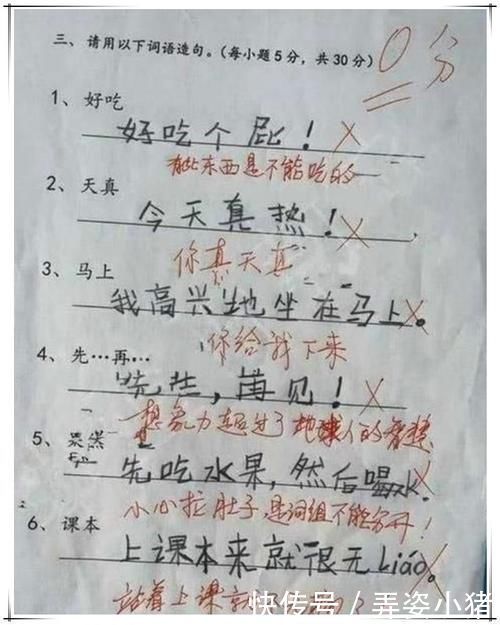 三、请用以下词语造句。(每小题5分，共30分)
0分
1、好吃
好吃个屁！
有些东西是不能吃的
2、天真
今天真热！
你真天真
3、马上
我高兴地坐在马上。
你给我下来
4、先…再…
先生，再见！
想象力超过了地球人的智慧
5、
先吃水果，然后喝水。
小心拉肚子，是词组不能分开！
6、课本
上课本来就很无liáo。
站着上课就
快传号 / 弄姿小猪